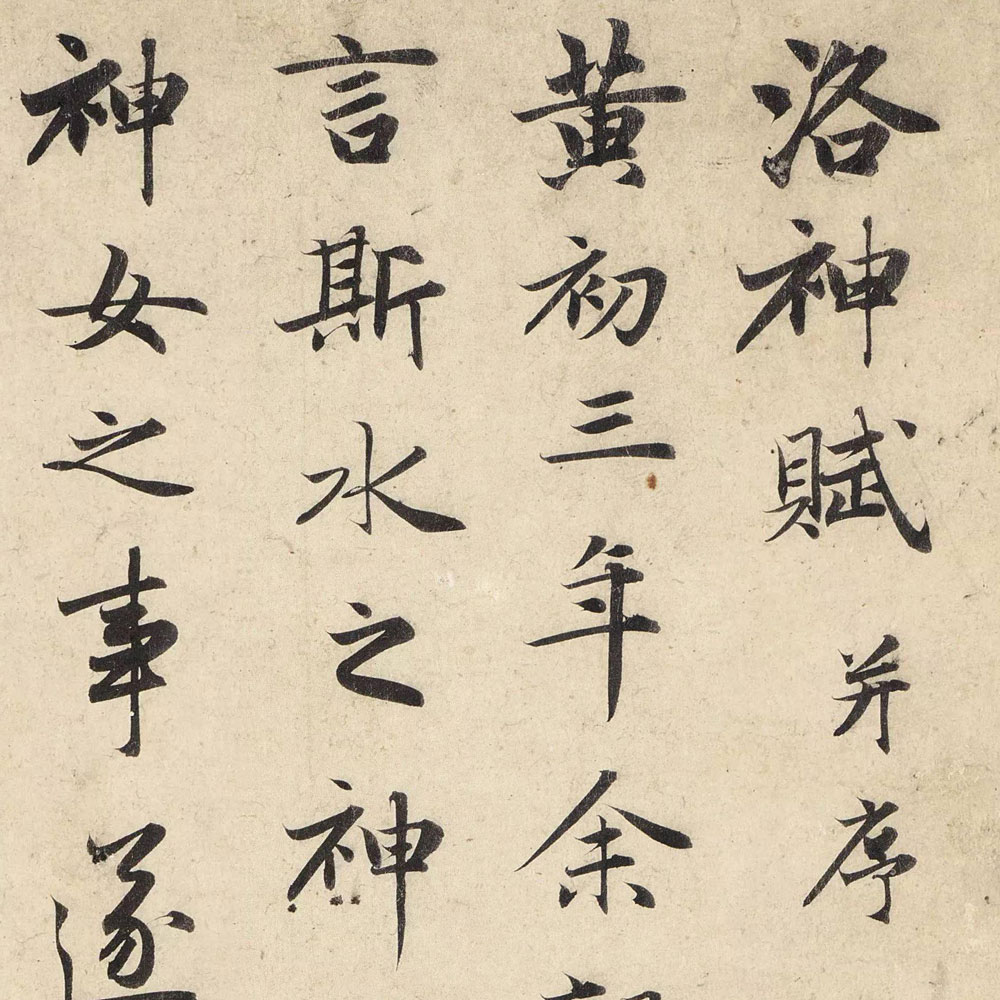 洛神賦并序
黃初三年余
言斯水之神
神女之事遂